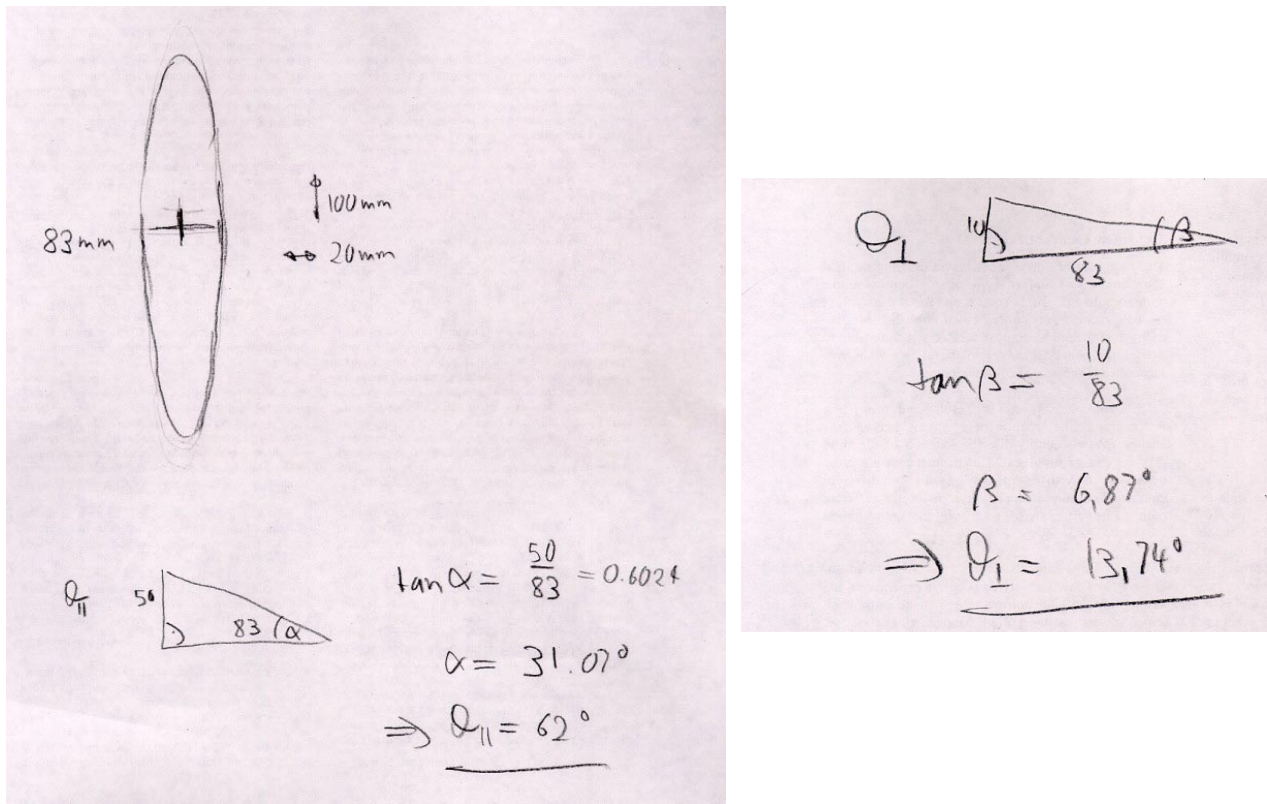 100mm
83mm
20mm
θ∥ 50 83 α
tan α = 50/83 = 0.6024
α = 31.07°
⇒ θ∥ = 62°
θ⊥ 10 β
83
tan β = 10/83
β = 6,87°
⇒ θ⊥ = 13,74°